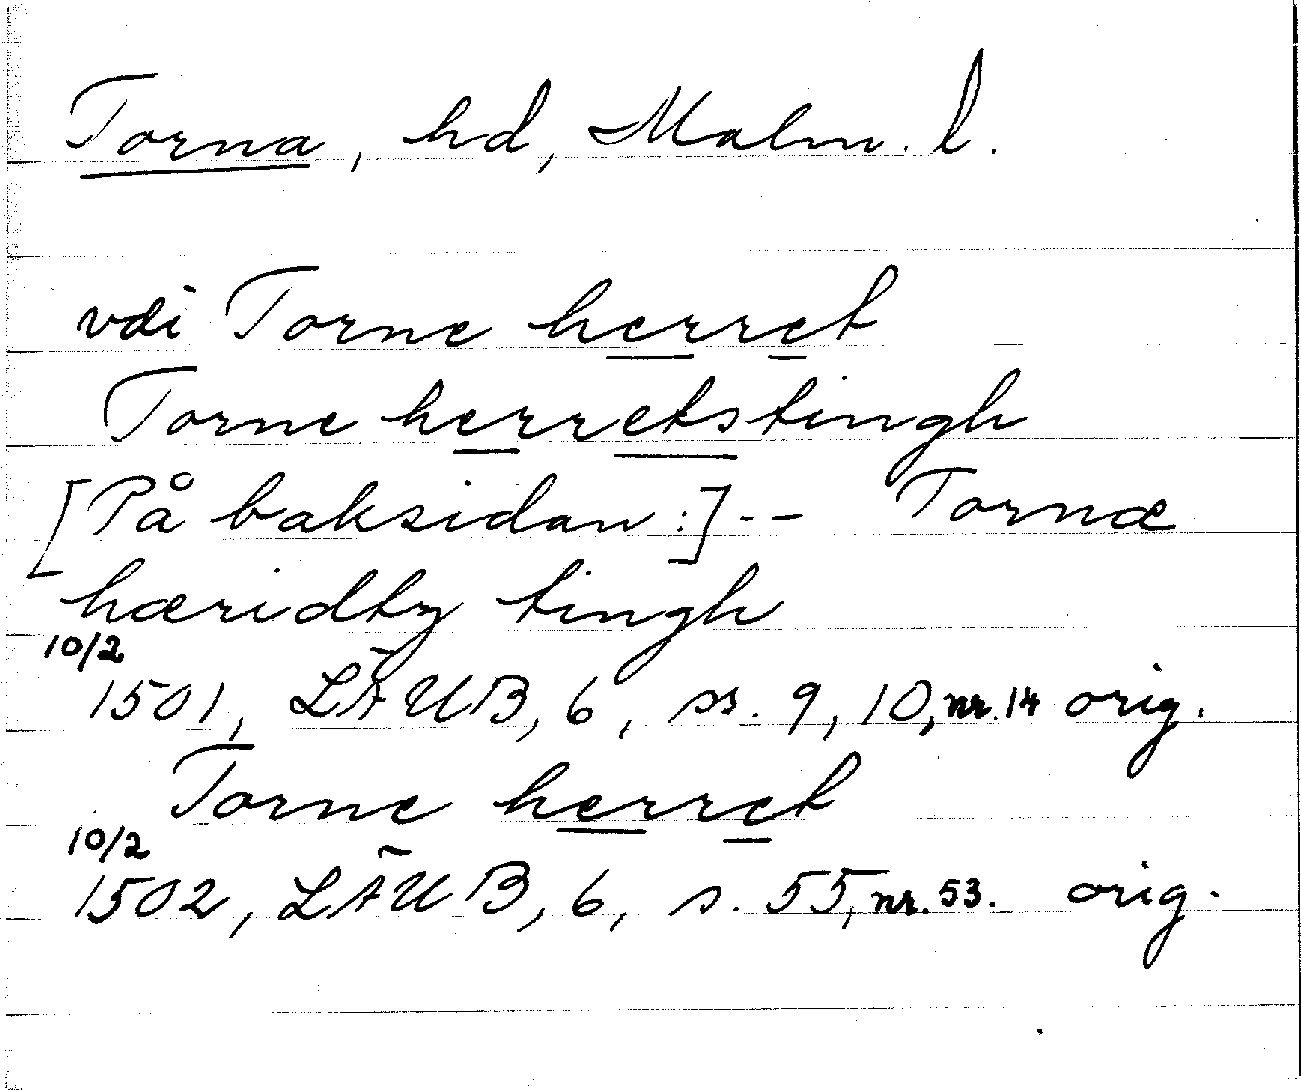 Torna, hd, Malm. l.
vdi Torne herret
Torne herretstingh
[På baksidan:]-- Tornæ
hæridtz tingh
10/2
1501, LÄUB, 6, ss. 9, 10, nr. 14 orig.
Torne herret
10/2
1502, LÄUB, 6, s. 55, nr. 53. orig.